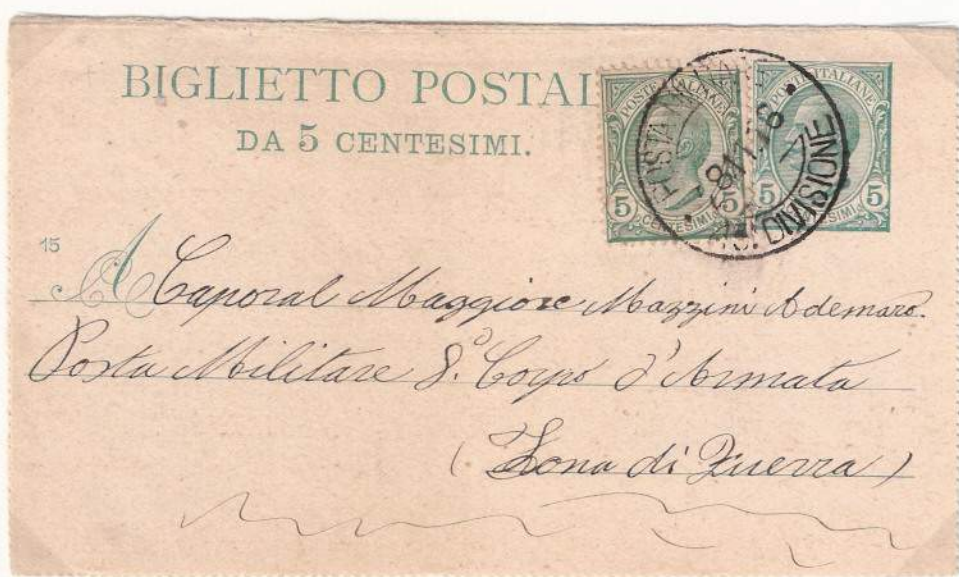 BIGLIETTO POSTAL
DA 5 CENTESIMI.
POSTE ITALIANE
5 CENTESIMI 5
POSTE ITALIANE
5 5
POSTA MILITARE
DIVISIONE
15
A Caporal Maggiore Mazzini Ademaro.
Posta Militare 8º Corpo d'Armata
(Zona di Guerra)